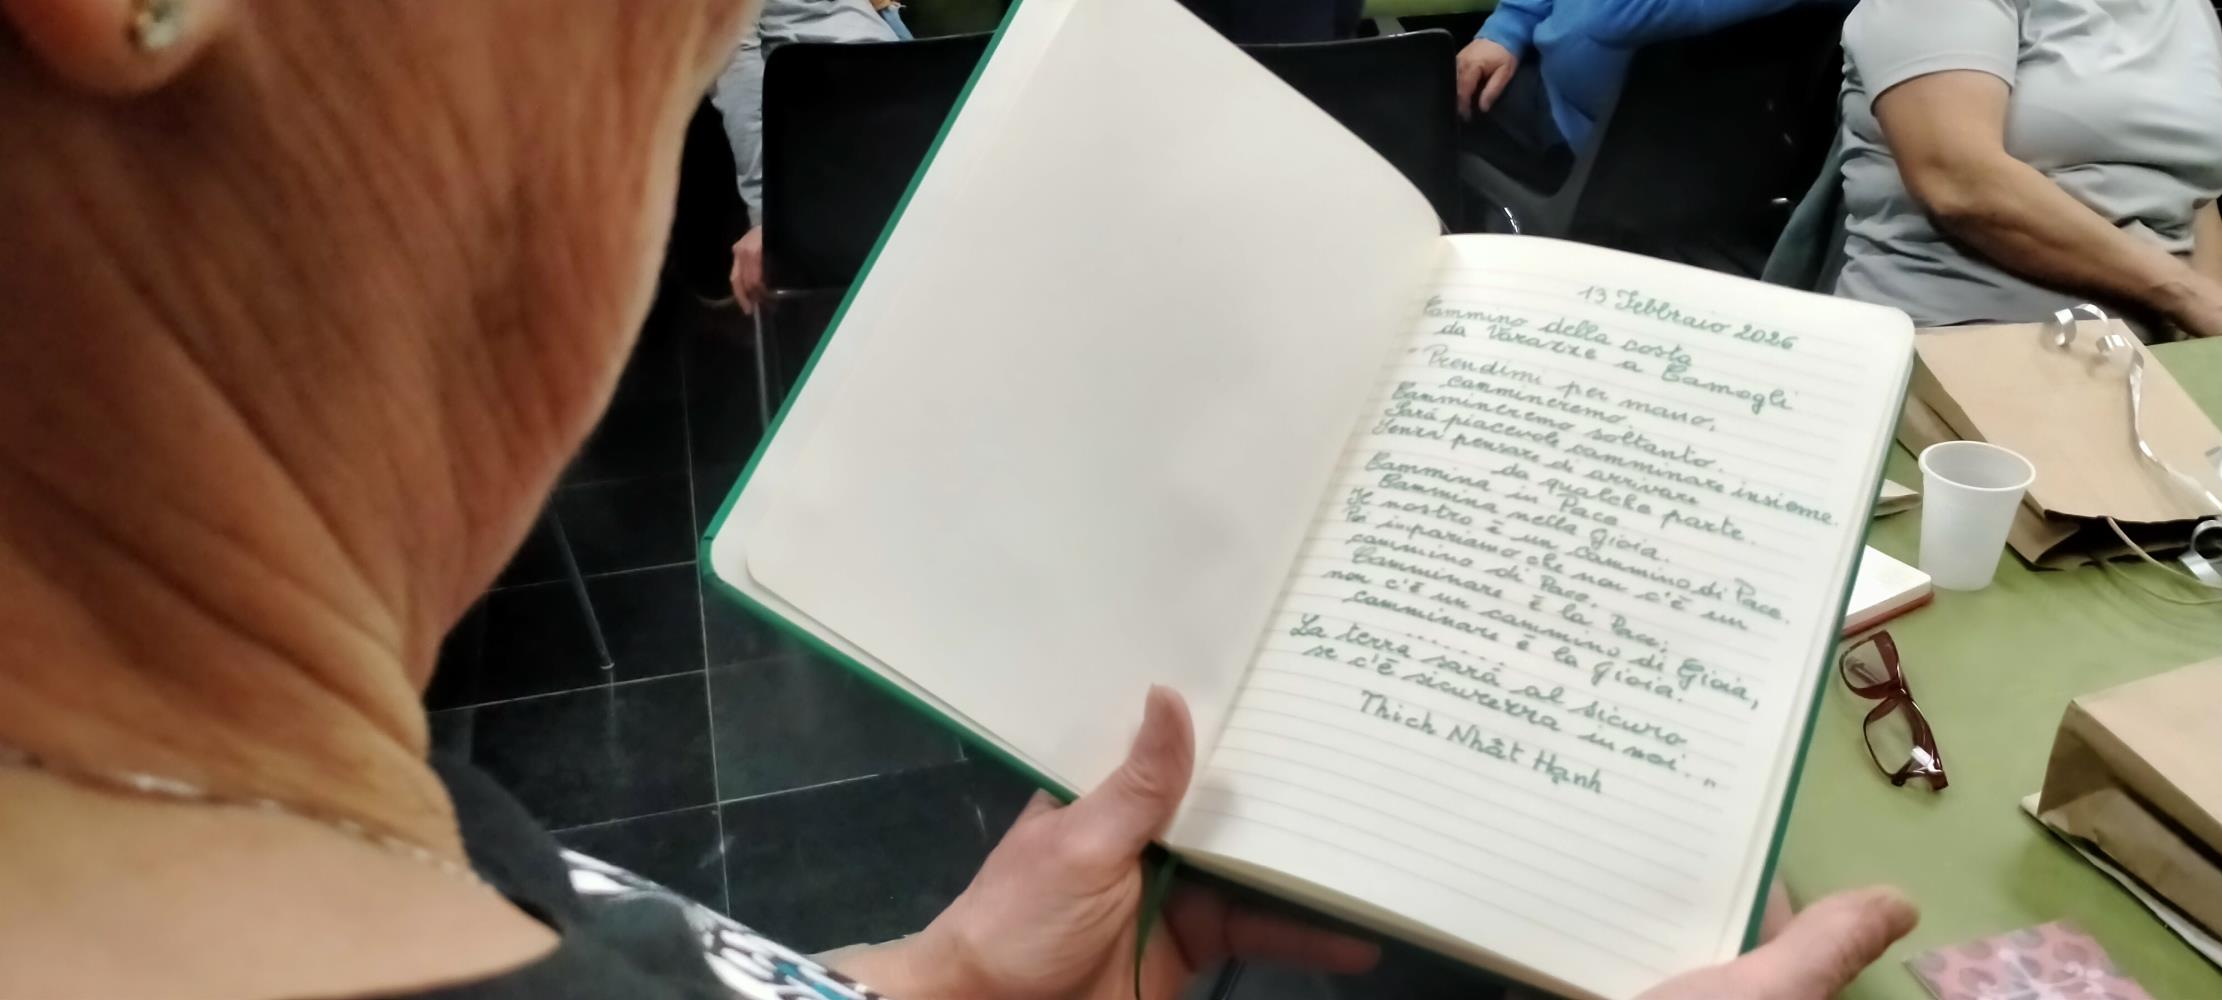 13 Febbraio 2026
Cammino della costa
da Varazze a Camogli
"Prendimi per mano,
cammineremo.
Cammineremo soltanto.
Sarà piacevole camminare insieme.
Senza pensare di arrivare
da qualche parte.
Cammina in Pace.
Cammina nella Gioia.
Il nostro è un cammino di Pace.
Poi impariamo che non c'è un
cammino di Pace.
Camminare è la Pace;
non c'è un cammino di Gioia,
camminare è la Gioia.
......
La terra sarà al sicuro
se c'è sicurezza in noi."
Thich Nhất Hạnh